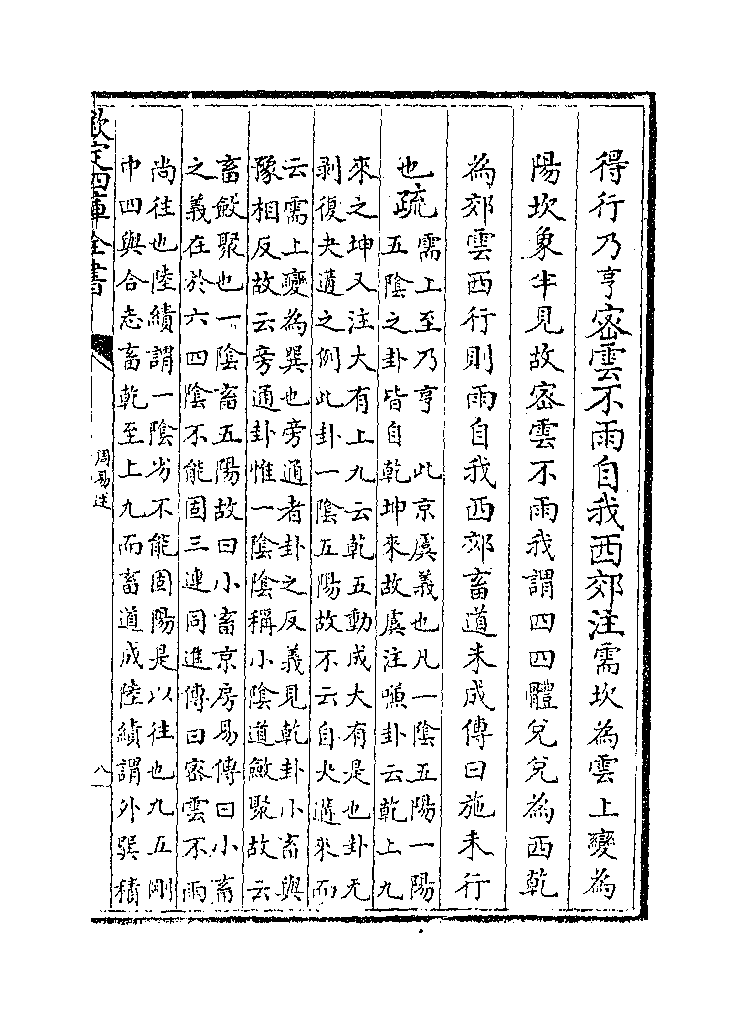 得行乃亨密雲不雨自我西郊注需坎為雲上變為
陽坎象半見故密雲不雨我謂四四體兌兌為西乾
為郊雲西行則雨自我西郊畜道未成傳曰施未行
也疏需上至乃亨　此京虞義也凡一陰五陽一陽
五陰之卦皆自乾坤來故虞注嗛卦云乾上九
來之坤又注大有上九云乾五動成大有是也卦无
剥復夬遘之例此卦一陰五陽故不云自夬遘來而
云需上變為巽也旁通者卦之反義見乾卦小畜與
豫相反故云旁通卦惟一陰陰稱小陰道斂聚故云
畜斂聚也一陰畜五陽故曰小畜京房易傳曰小畜
之義在於六四陰不能固三連同進傳曰密雲不雨
尚往也陸績謂一陰劣不能固陽是以往也九五剛
中四與合志畜乾至上九而畜道成陸績謂外巽積
欽定四庫全書
周易述
八